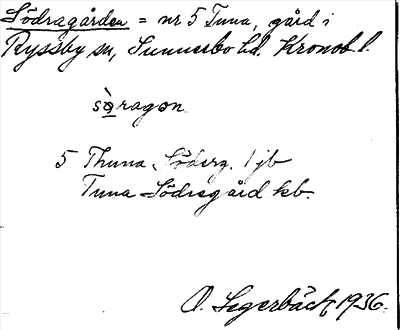 Södragården = nr 5 Tuna, gård i
Ryssby sn, Sunnerbo hd. Kronob. l.
sòragɔn
5 Thuna, Söderg. 1 jb
Tuna Södregård kb.
O. Segerbäck 1936.